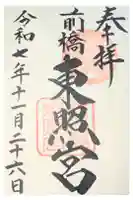 奉拝
前橋
東照宮
令和七年十一月二十六日